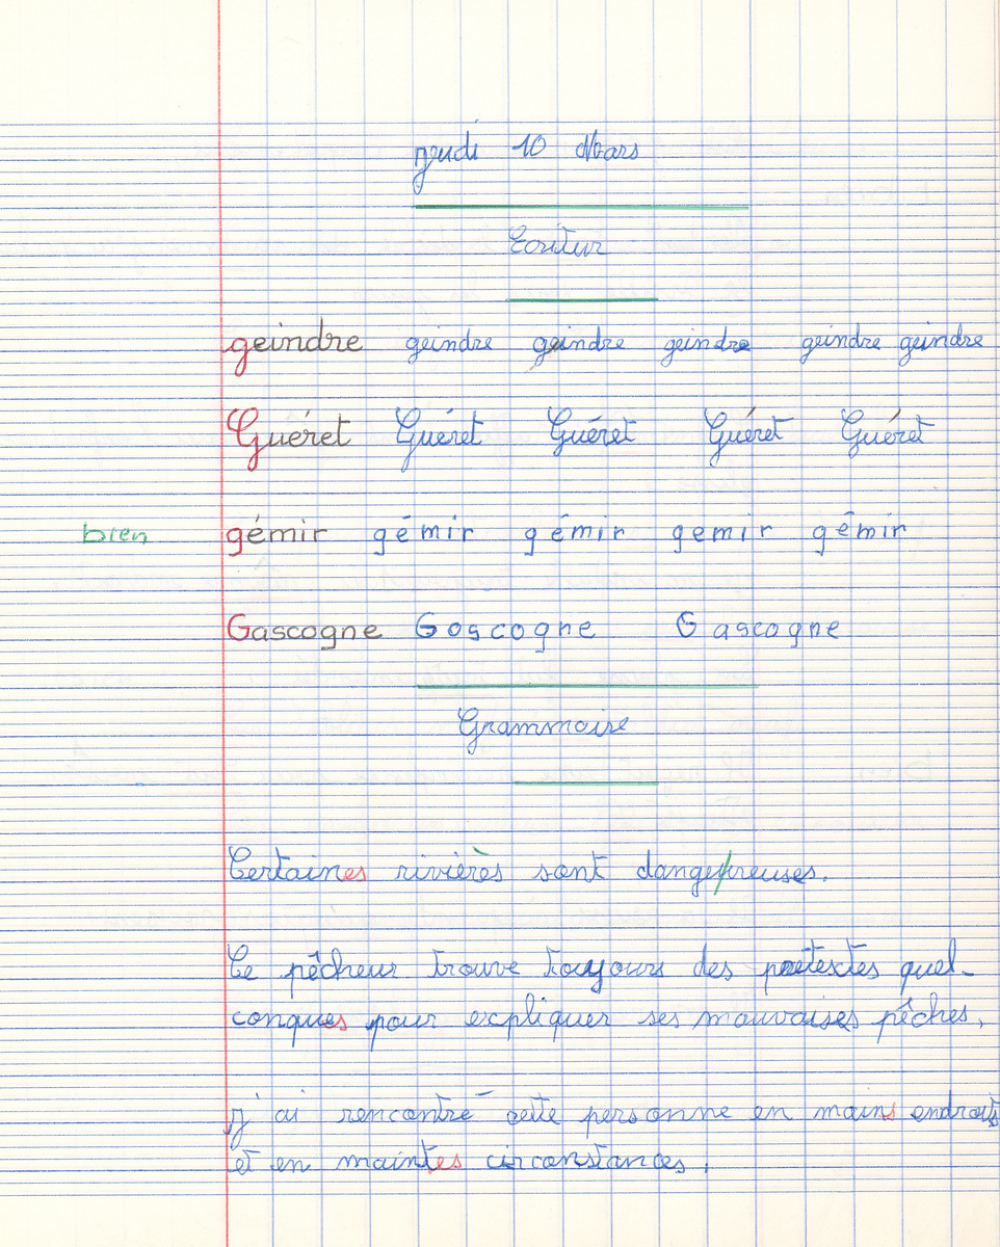 jeudi 10 Mars
Ecritur
geindre geindre geindre geindre geindre geindre
Guéret Guéret Guéret Guéret Guéret
bien gémir gémir gémir gemir gémir
Gascogne Goscogne Gascogne
Grammaire
Certaines rivières sont dangereuses.
Ce pêcheur trouve toujours des pretextes quel-
conques pour expliquer ses mauvaises pêches.
j'ai rencontré cette personne en mains endroits
et en maintes circonstances.